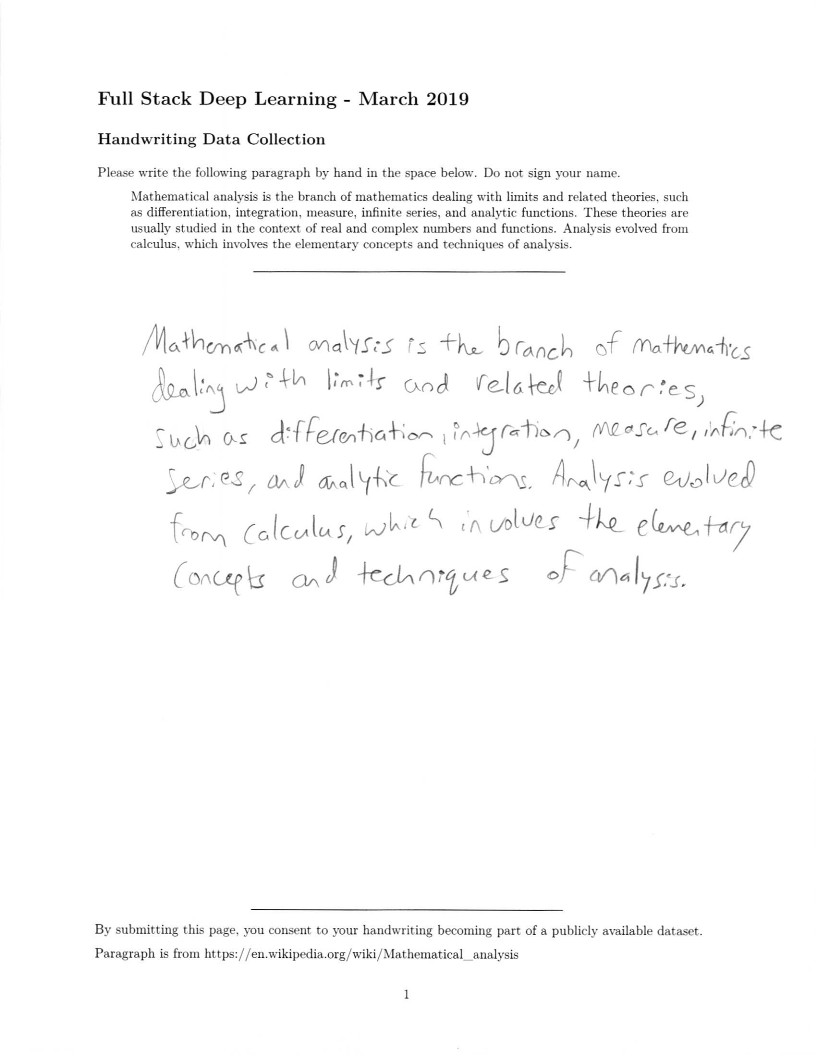 Full Stack Deep Learning - March 2019
Handwriting Data Collection
Please write the following paragraph by hand in the space below. Do not sign your name.
Mathematical analysis is the branch of mathematics dealing with limits and related theories, such
as differentiation, integration, measure, infinite series, and analytic functions. These theories are
usually studied in the context of real and complex numbers and functions. Analysis evolved from
calculus, which involves the elementary concepts and techniques of analysis.
Mathematical analysis is the branch of mathematics
dealing with limits and related theories,
such as differentiation, integration, measure, infinite
series, and analytic functions. Analysis evolved
from calculus, which involves the elementary
concepts and techniques of analysis.
By submitting this page, you consent to your handwriting becoming part of a publicly available dataset.
Paragraph is from https://en.wikipedia.org/wiki/Mathematical_analysis
1